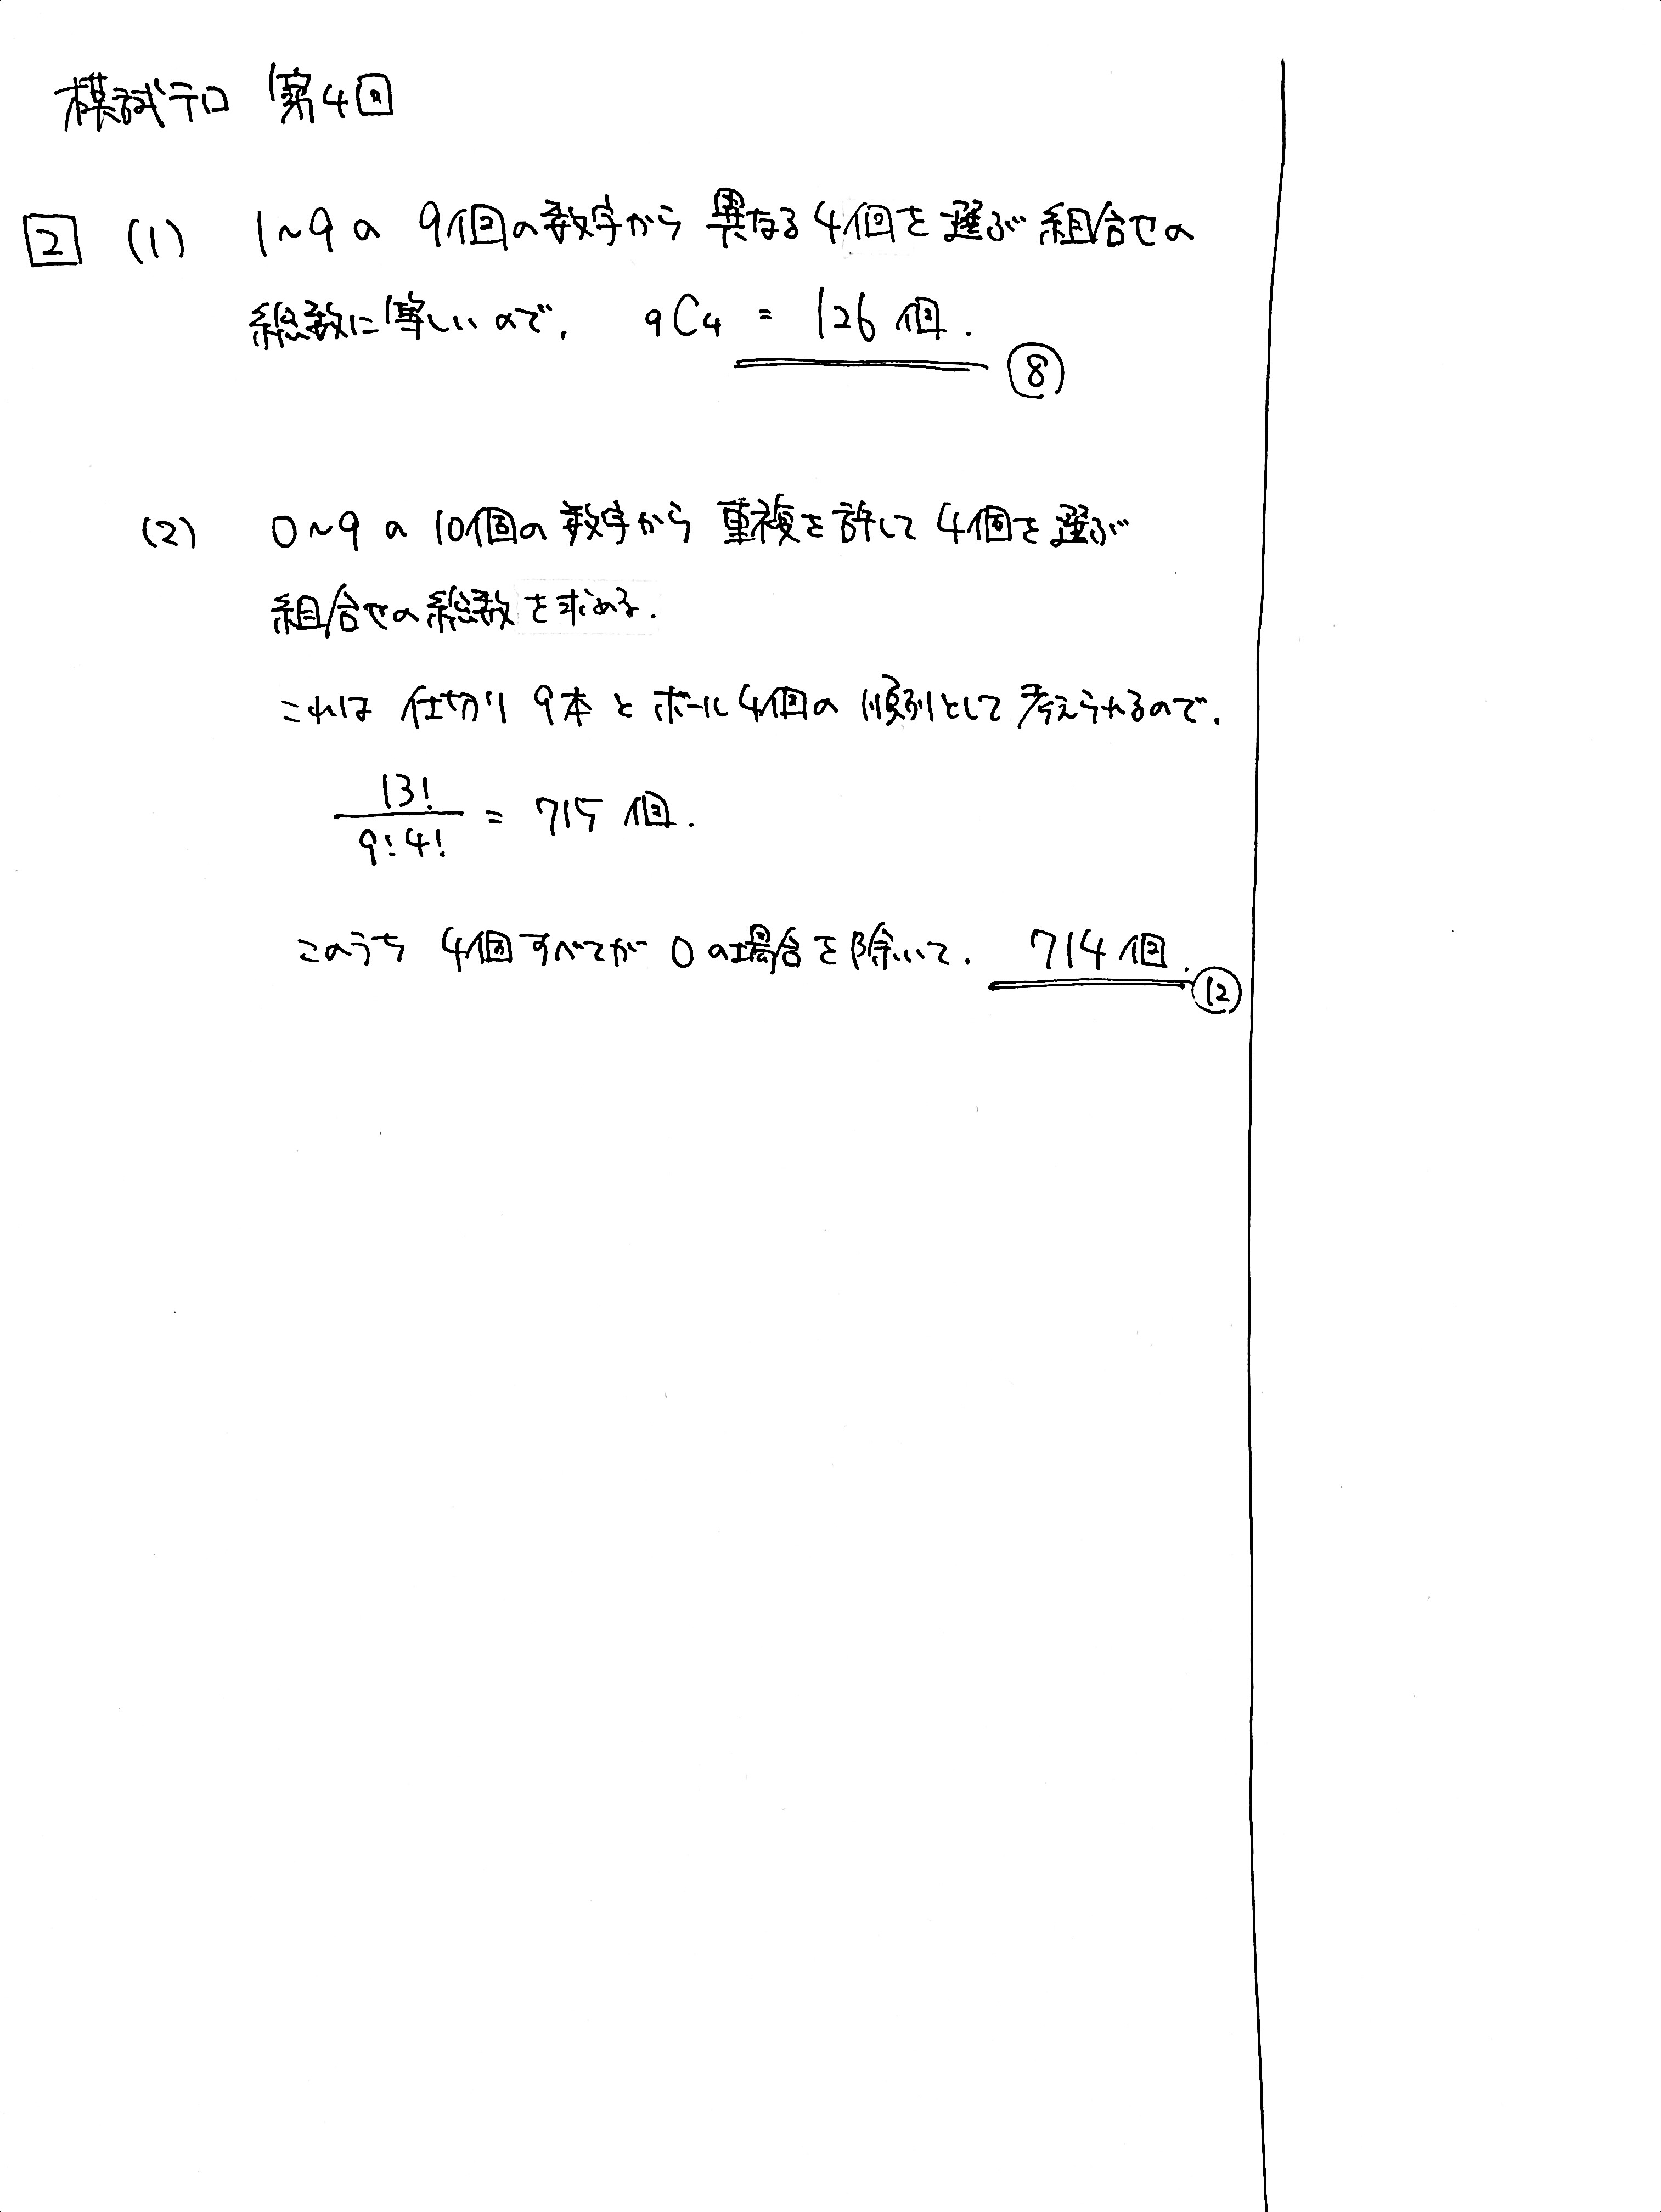 模試テロ 第4回
2 (1) 1~9の 9個の数字から 異なる4個を選ぶ組合せの
総数に等しいので, ₉C₄ = 126個.
⑧
(2) 0~9の 10個の数字から 重複を許して 4個を選ぶ
組合せの総数を求める.
これは 仕切り 9本 と ボール4個の 順列として 考えられるので,
13!/9!4! = 715個.
このうち 4個すべてが 0の場合を除いて, 714個.
⑫